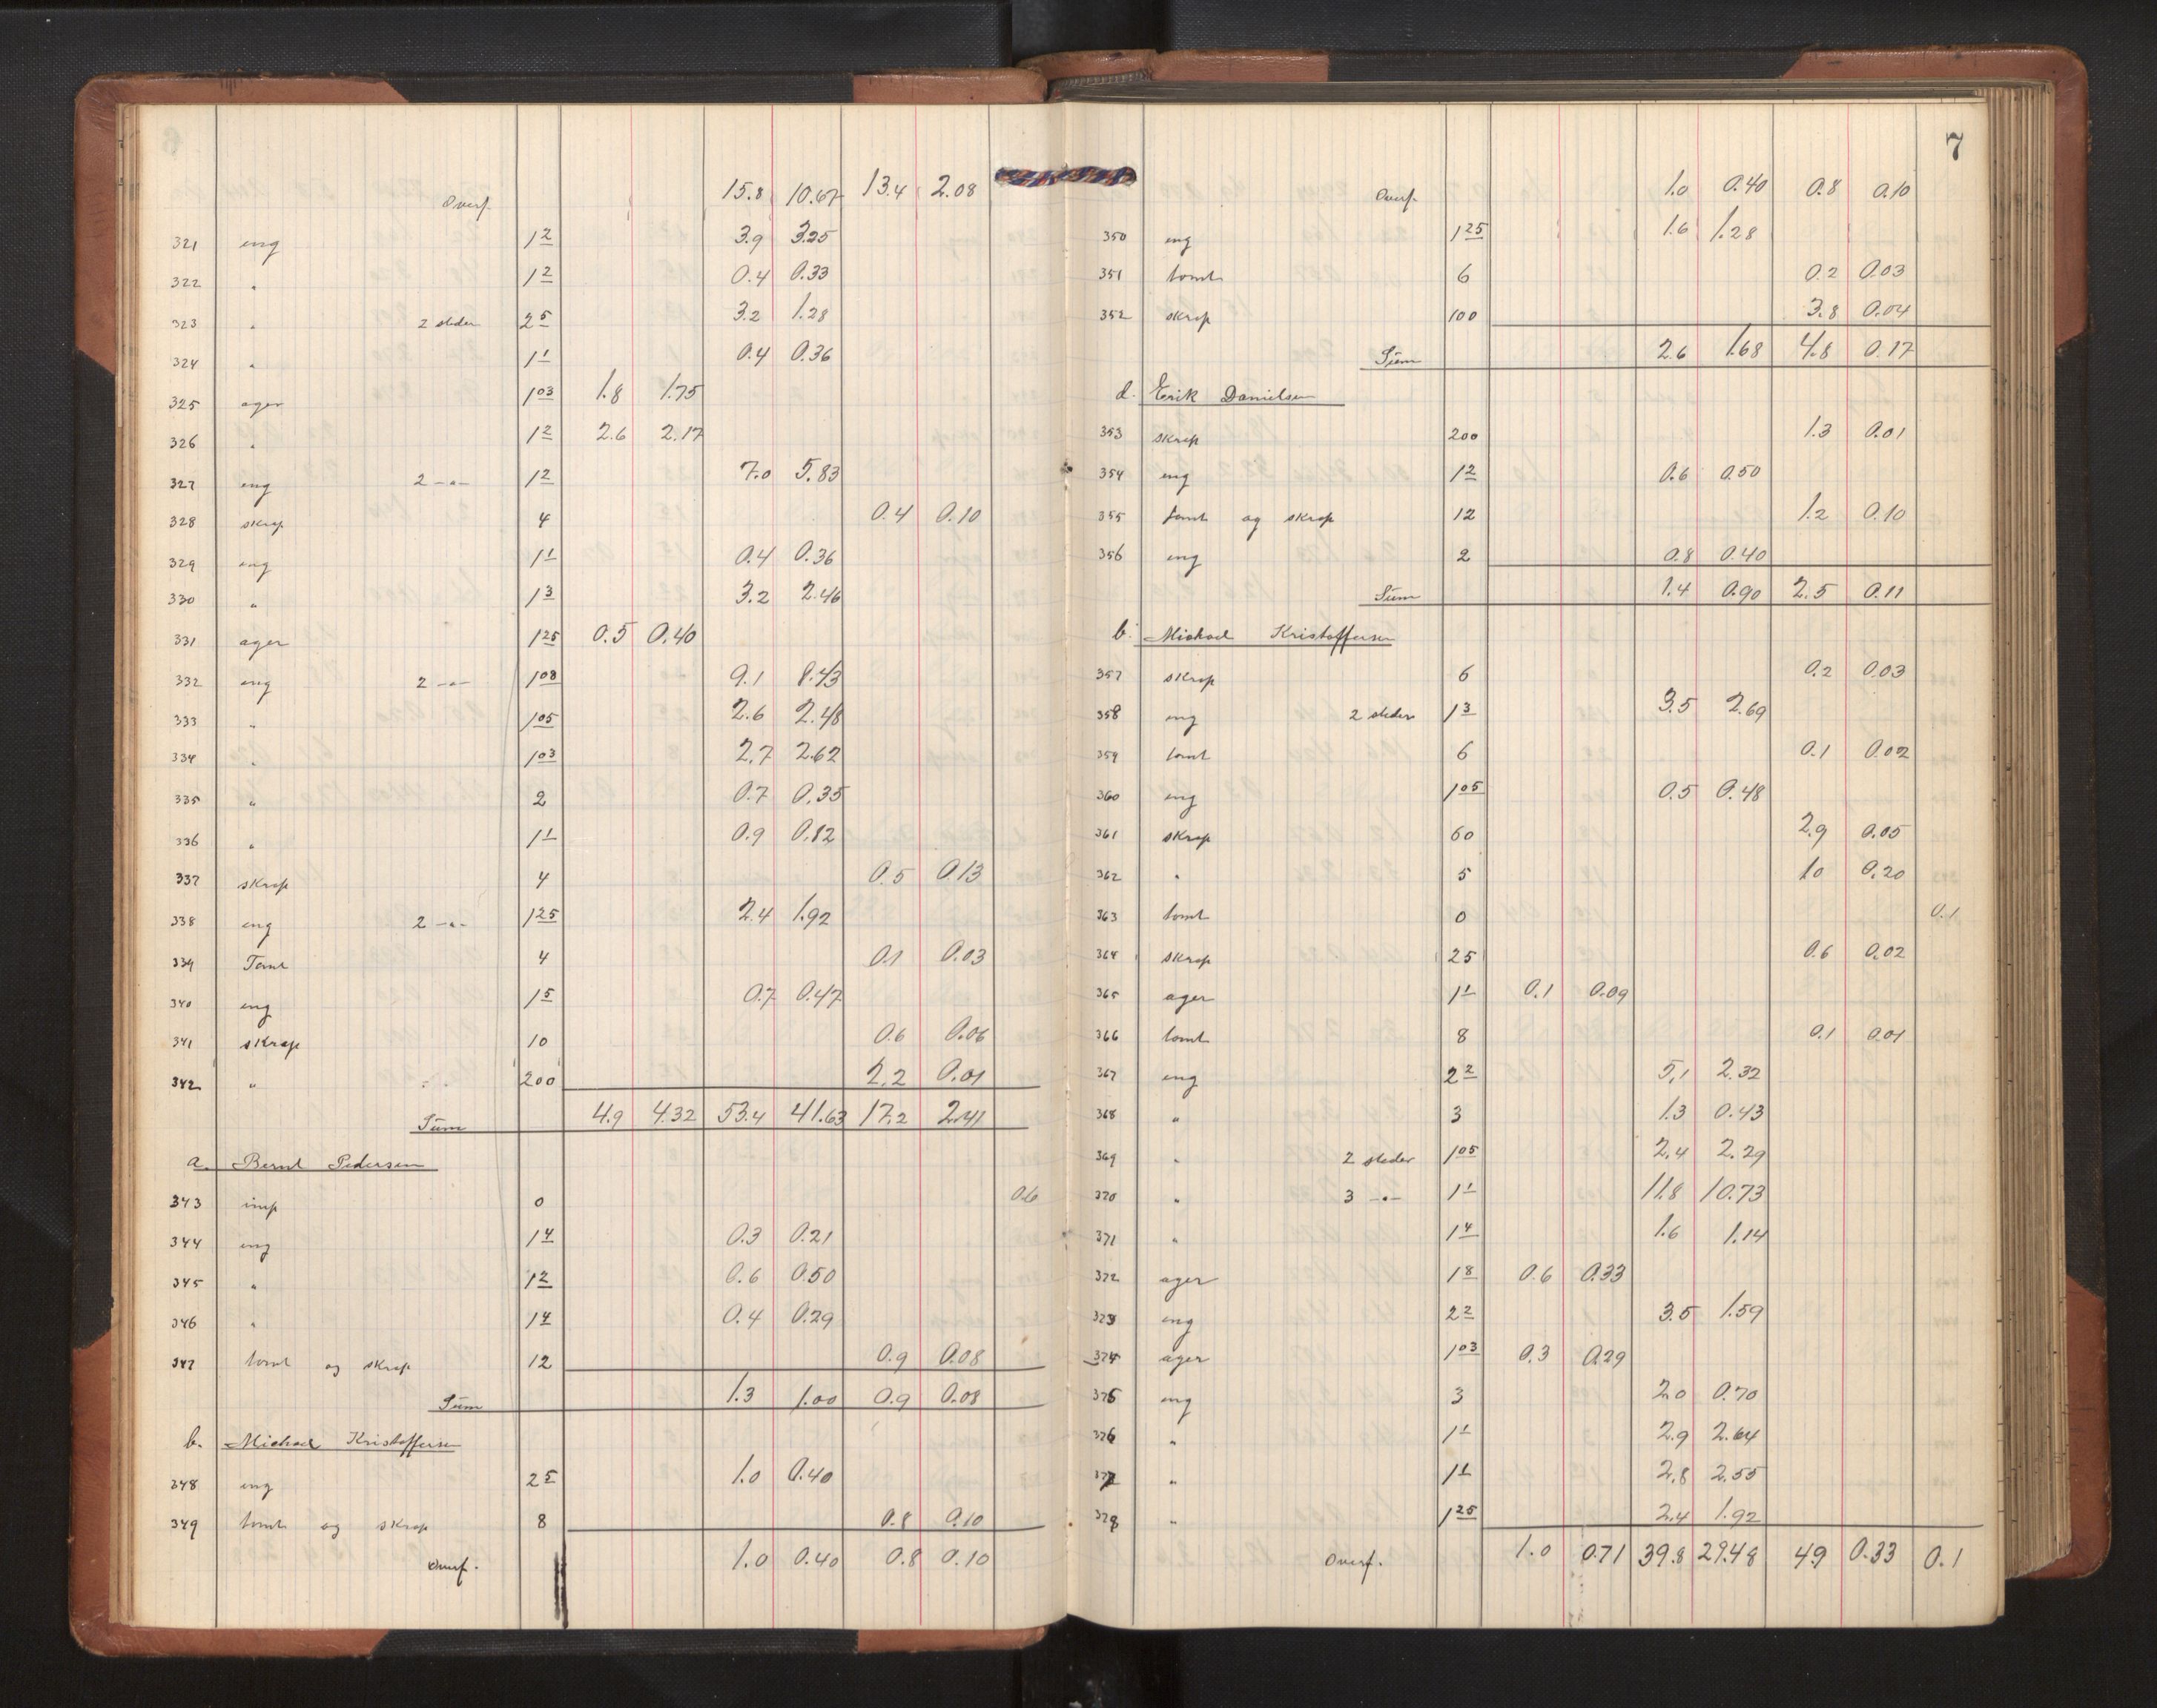 Overf. 15.8 10.67 13.4 2.08
321 eng 1 2 3.9 3.25
322 " 1 2 0.4 0.33
323 " 2 steder 2 5 3.2 1.28
324 " 1 1 0.4 0.36
325 ager 1 03 1.8 1.75
326 " 1 2 2.6 2.17
327 eng 2 -"- 1 2 7.0 5.83
328 skrap 4 0.4 0.10
329 eng 1 1 0.4 0.36
330 " 1 3 3.2 2.46
331 ager 1 25 0.5 0.40
332 eng 2 -"- 1 08 9.1 8.43
333 " 1 05 2.6 2.48
334 " 1 03 2.7 2.62
335 " 2 0.7 0.35
336 " 1 1 0.9 0.82
337 skrap 4 0.5 0.13
338 eng 2 -"- 1 25 2.4 1.92
339 Tomt 4 0.1 0.03
340 eng 1 5 0.7 0.47
341 skrap 10 0.6 0.06
342 " 200 2.2 0.01
Sum 4.9 4.32 53.4 41.63 17.2 2.41
a. Bernt Pedersen
343 imp 0 0.6
344 eng 1 4 0.3 0.21
345 " 1 2 0.6 0.50
346 " 1 4 0.4 0.29
347 tomt og skrap 12 0.9 0.08
Sum 1.3 1.00 0.9 0.08
b. Michael Kristoffersen
348 eng 2 5 1.0 0.40
349 tomt og skrap 8 0.8 0.10
Overf. 1.0 0.40 0.8 0.10
7
Overf. 1.0 0.40 0.8 0.10
350 eng 1 25 1.6 1.28
351 tomt 6 0.2 0.03
352 skrap 100 3.8 0.04
Sum 2.6 1.68 4.8 0.17
d. Erik Danielsen
353 skrap 200 1.3 0.01
354 eng 1 2 0.6 0.50
355 tomt og skrap 12 1.2 0.10
356 eng 2 0.8 0.40
Sum 1.4 0.90 2.5 0.11
b. Michael Kristoffersen
357 skrap 6 0.2 0.03
358 eng 2 steder 1 3 3.5 2.69
359 tomt 6 0.1 0.02
360 eng 1 05 0.5 0.48
361 skrap 60 2.9 0.05
362 " 5 1.0 0.20
363 tomt 0 0.1
364 skrap 25 0.6 0.02
365 ager 1 1 0.1 0.09
366 tomt 8 0.1 0.01
367 eng 2 2 5.1 2.32
368 " 3 1.3 0.43
369 " 2 steder 1 05 2.4 2.29
370 " 3 -"- 1 1 11.8 10.73
371 " 1 4 1.6 1.14
372 ager 1 8 0.6 0.33
373 eng 2 2 3.5 1.59
374 ager 1 03 0.3 0.29
375 eng 3 2.0 0.70
376 " 1 1 2.9 2.64
377 " 1 1 2.8 2.55
378 " 1 25 2.4 1.92
Overf. 1.0 0.71 39.8 29.48 4.9 0.33 0.1